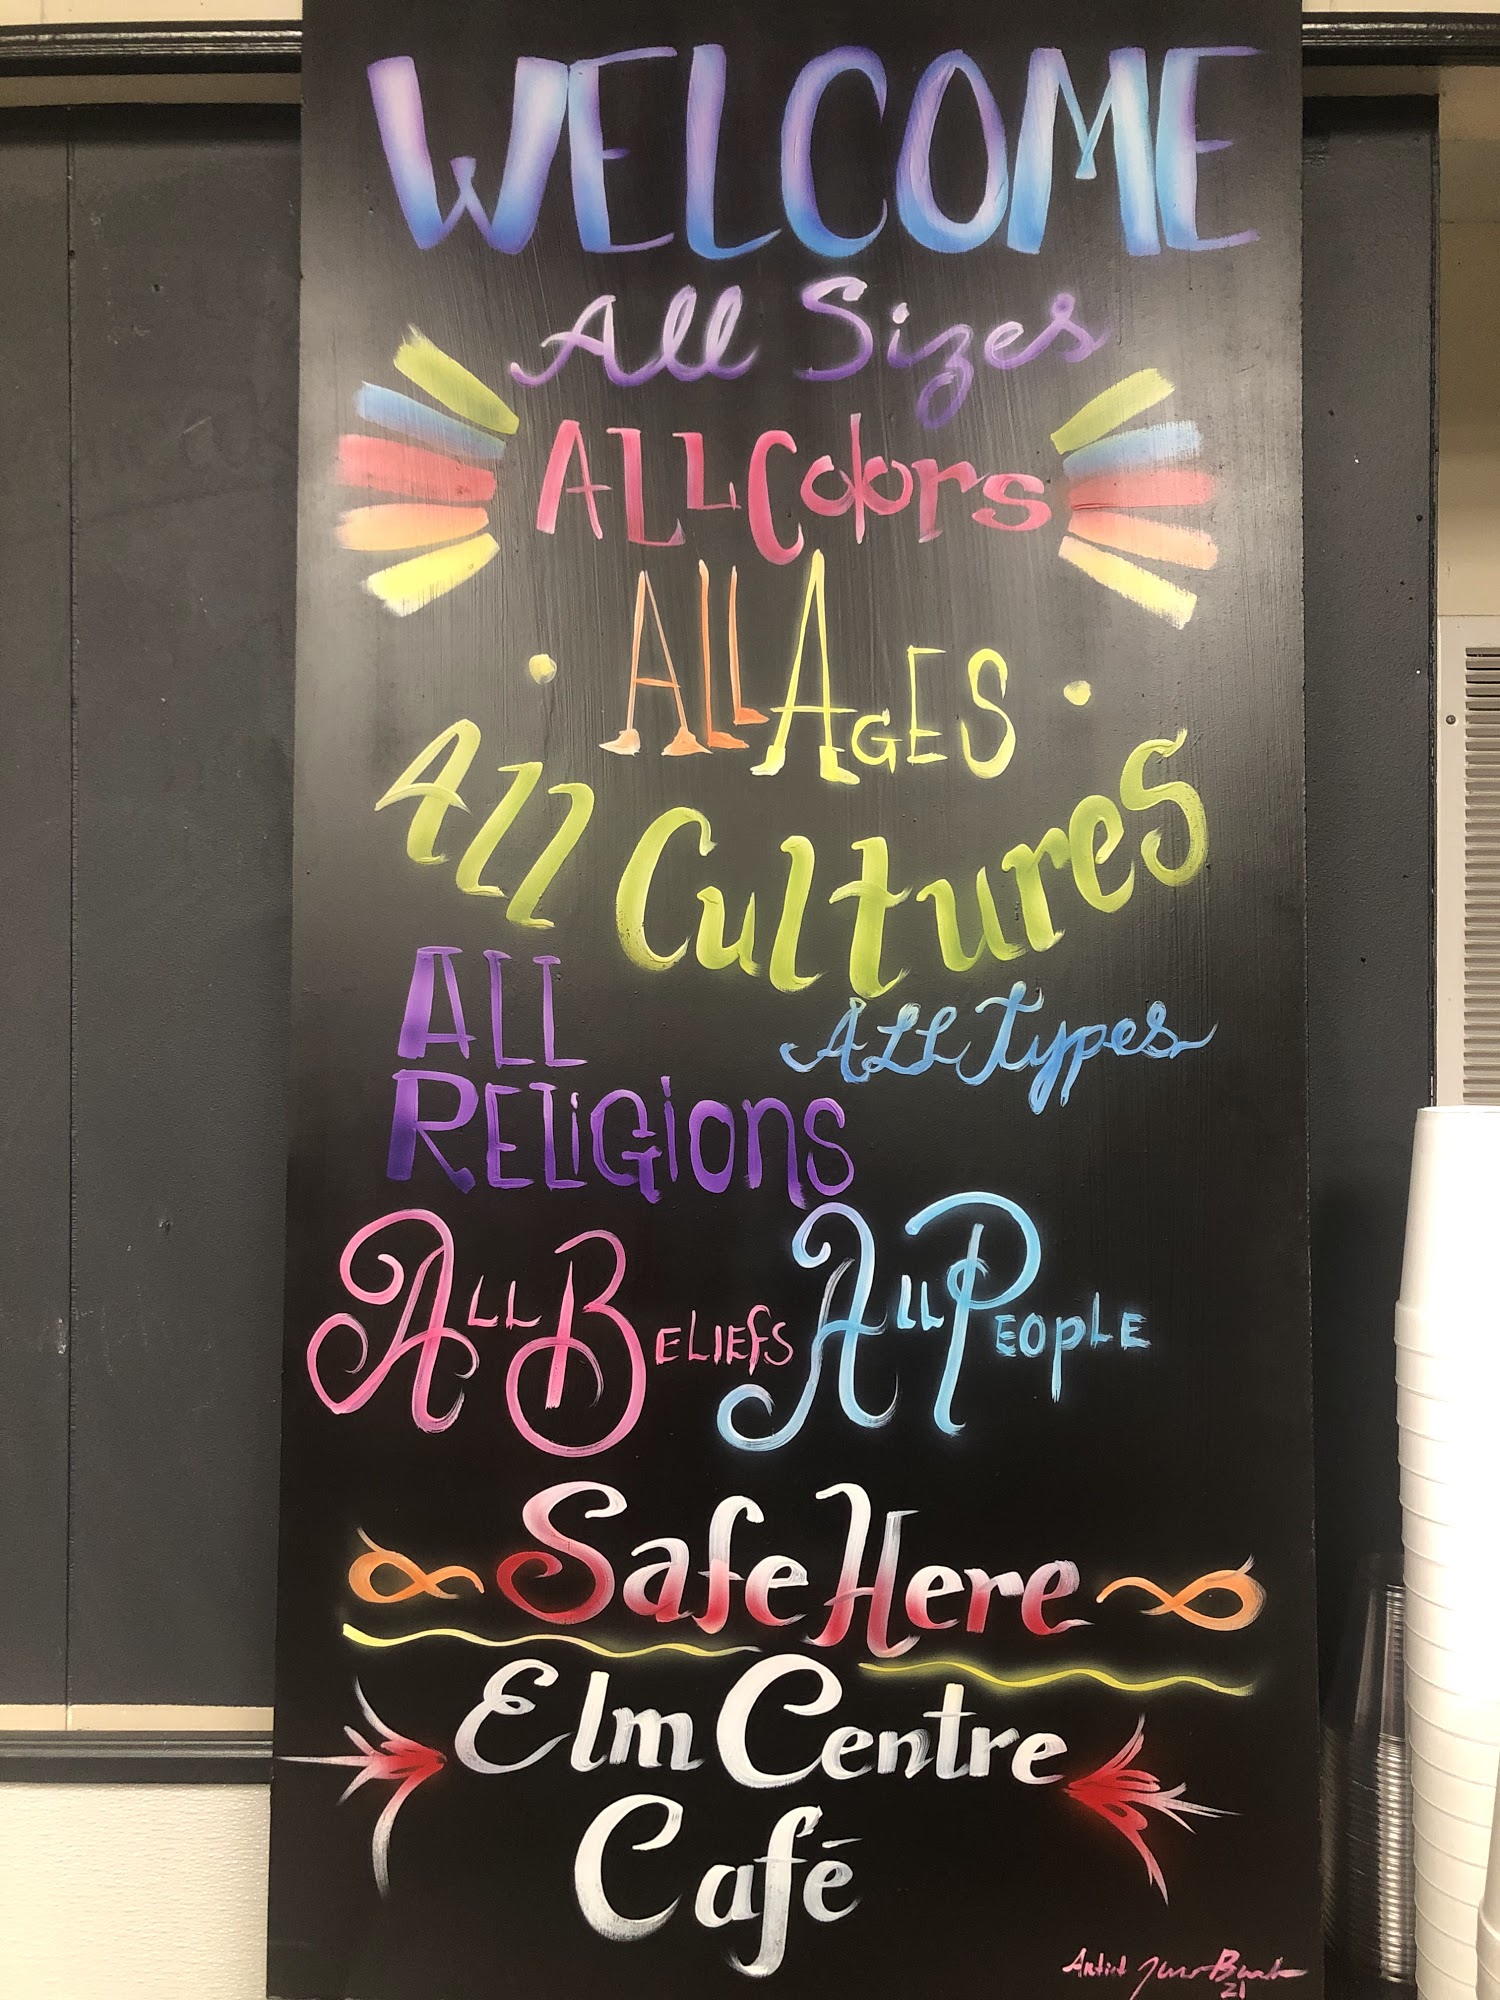 WELCOME
All Sizes
ALL Colors
ALL AGES
All Cultures
ALL
RELIGIONS
ALL Types
ALL BELIEFS ALL PEOPLE
Safe Here
Elm Centre
Café
Artist
21